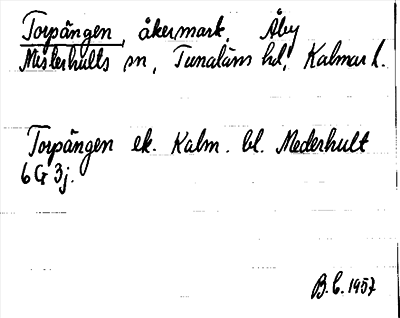 Torpängen, åkermark, Åby
Misterhults sn, Tunaläns hd, Kalmar l.
Torpängen ek. Kalm. bl. Mederhult
6 G 3j.
B.C. 1957